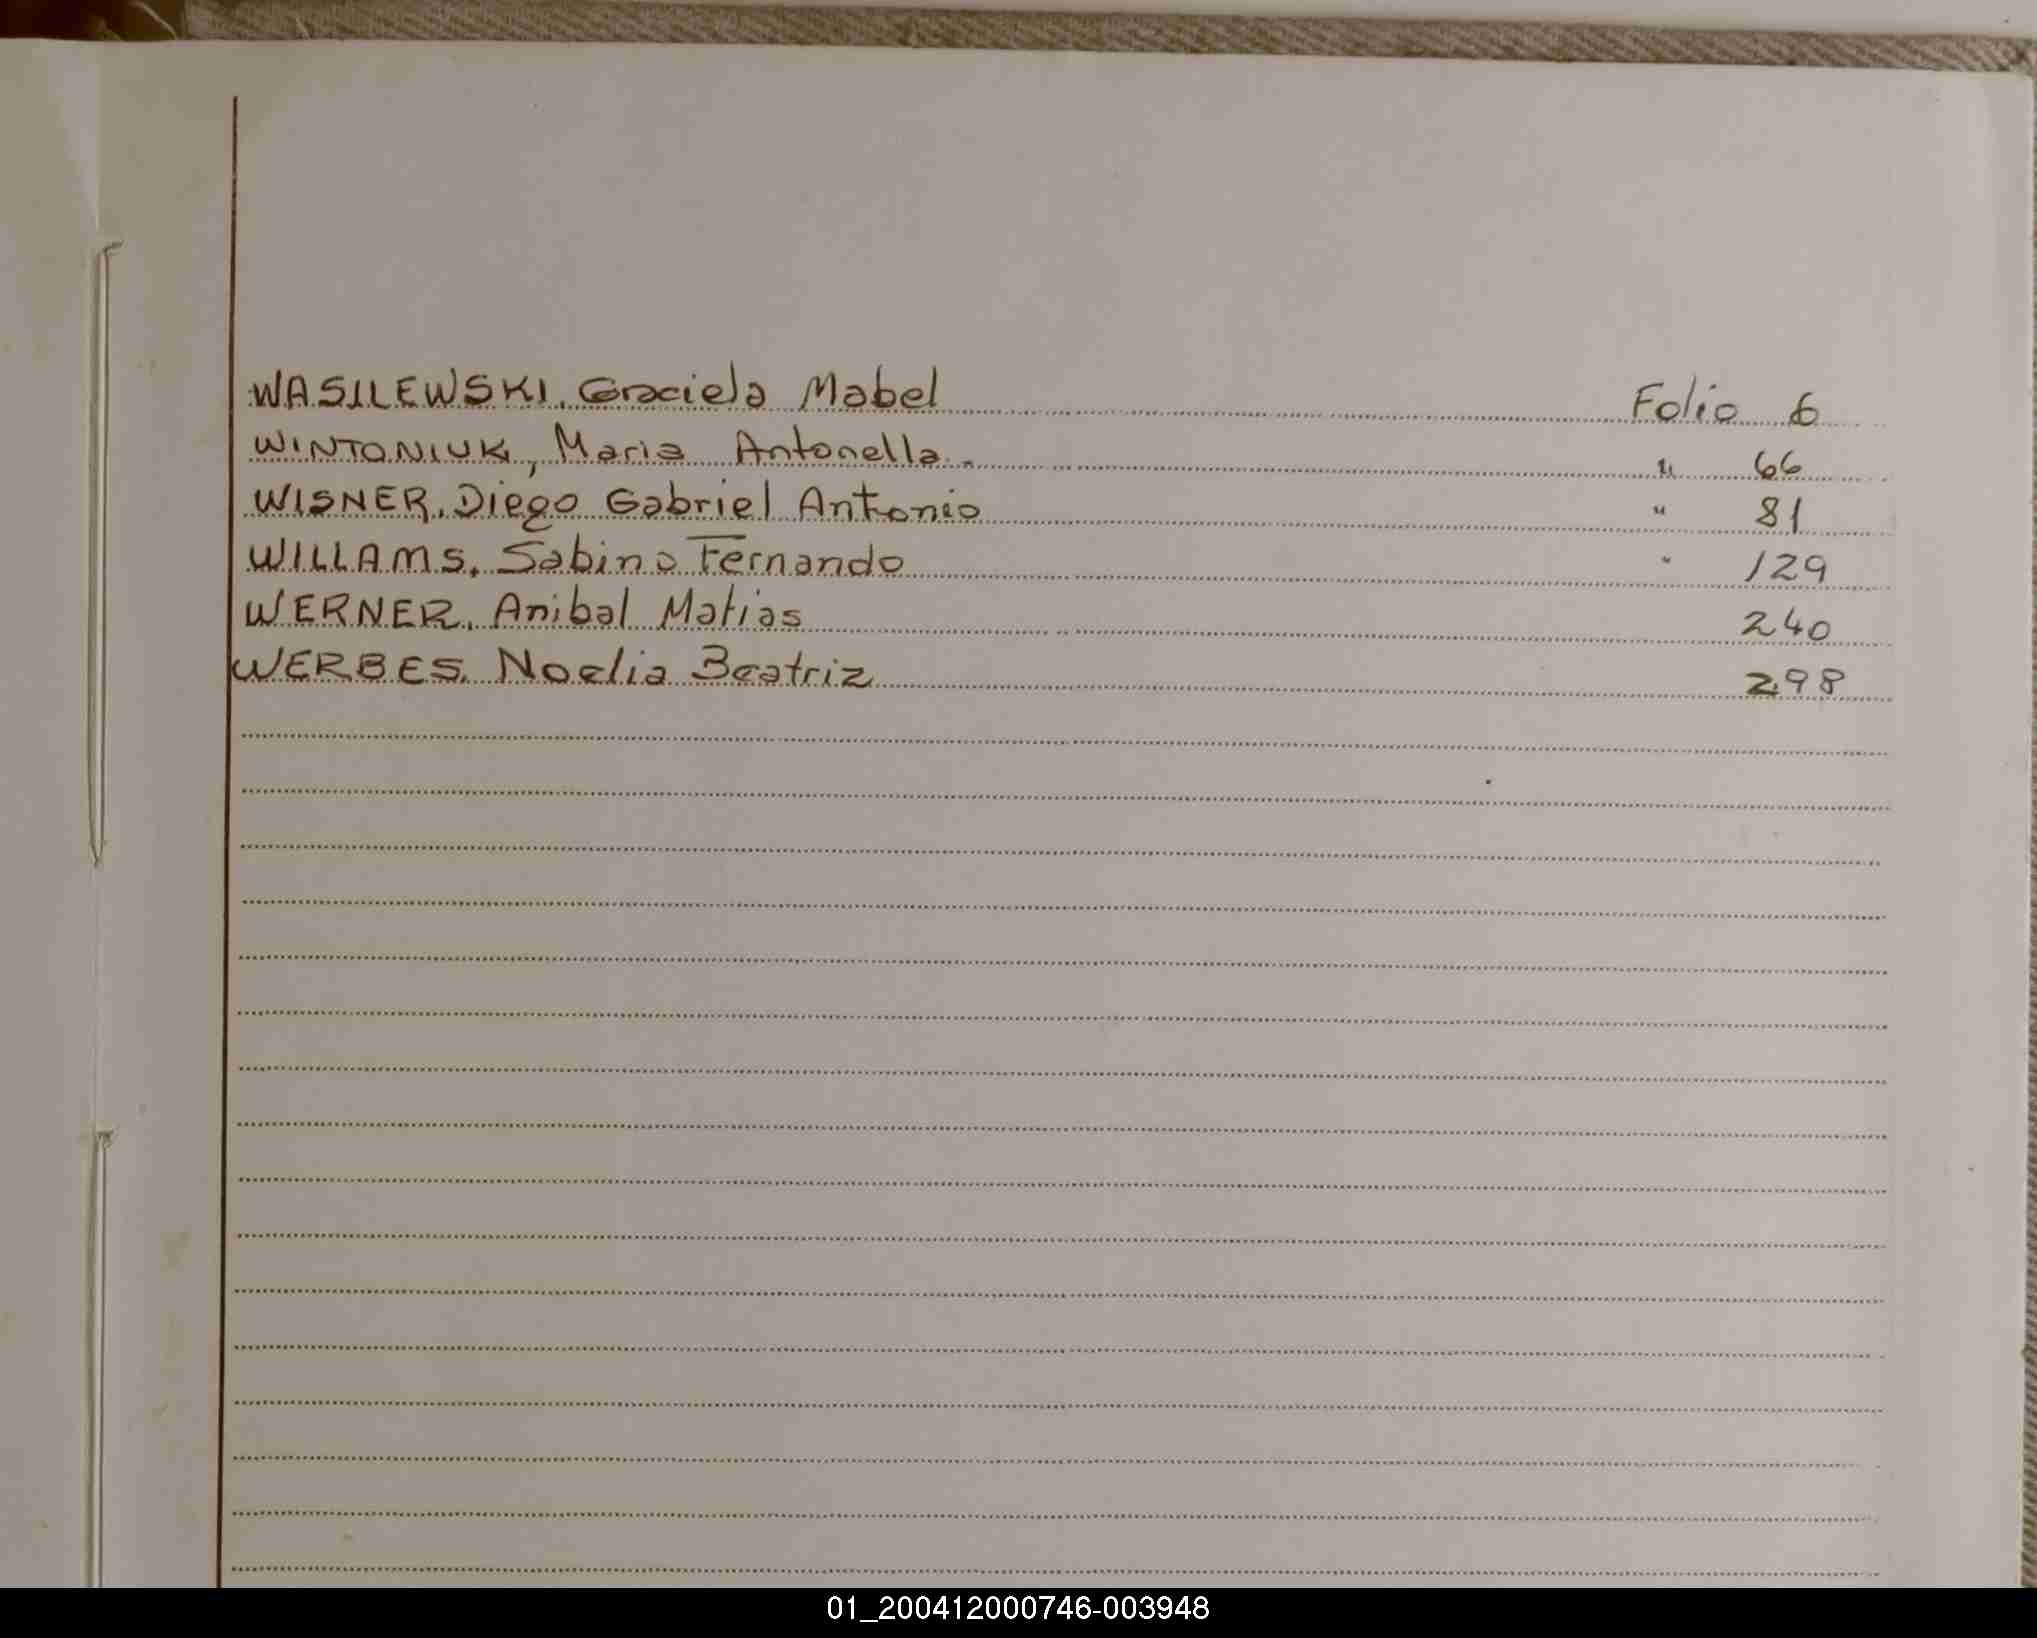 WASILEWSKI, Graciela Mabel Folio 6
WINTONIUK, Maria Antonella.- " 66
WISNER, Diego Gabriel Antonio " 81
WILLAMS, Sabino Fernando " 129
WERNER, Anibal Matias 240
WERBES, Noelia Beatriz 298
01_200412000746-003948